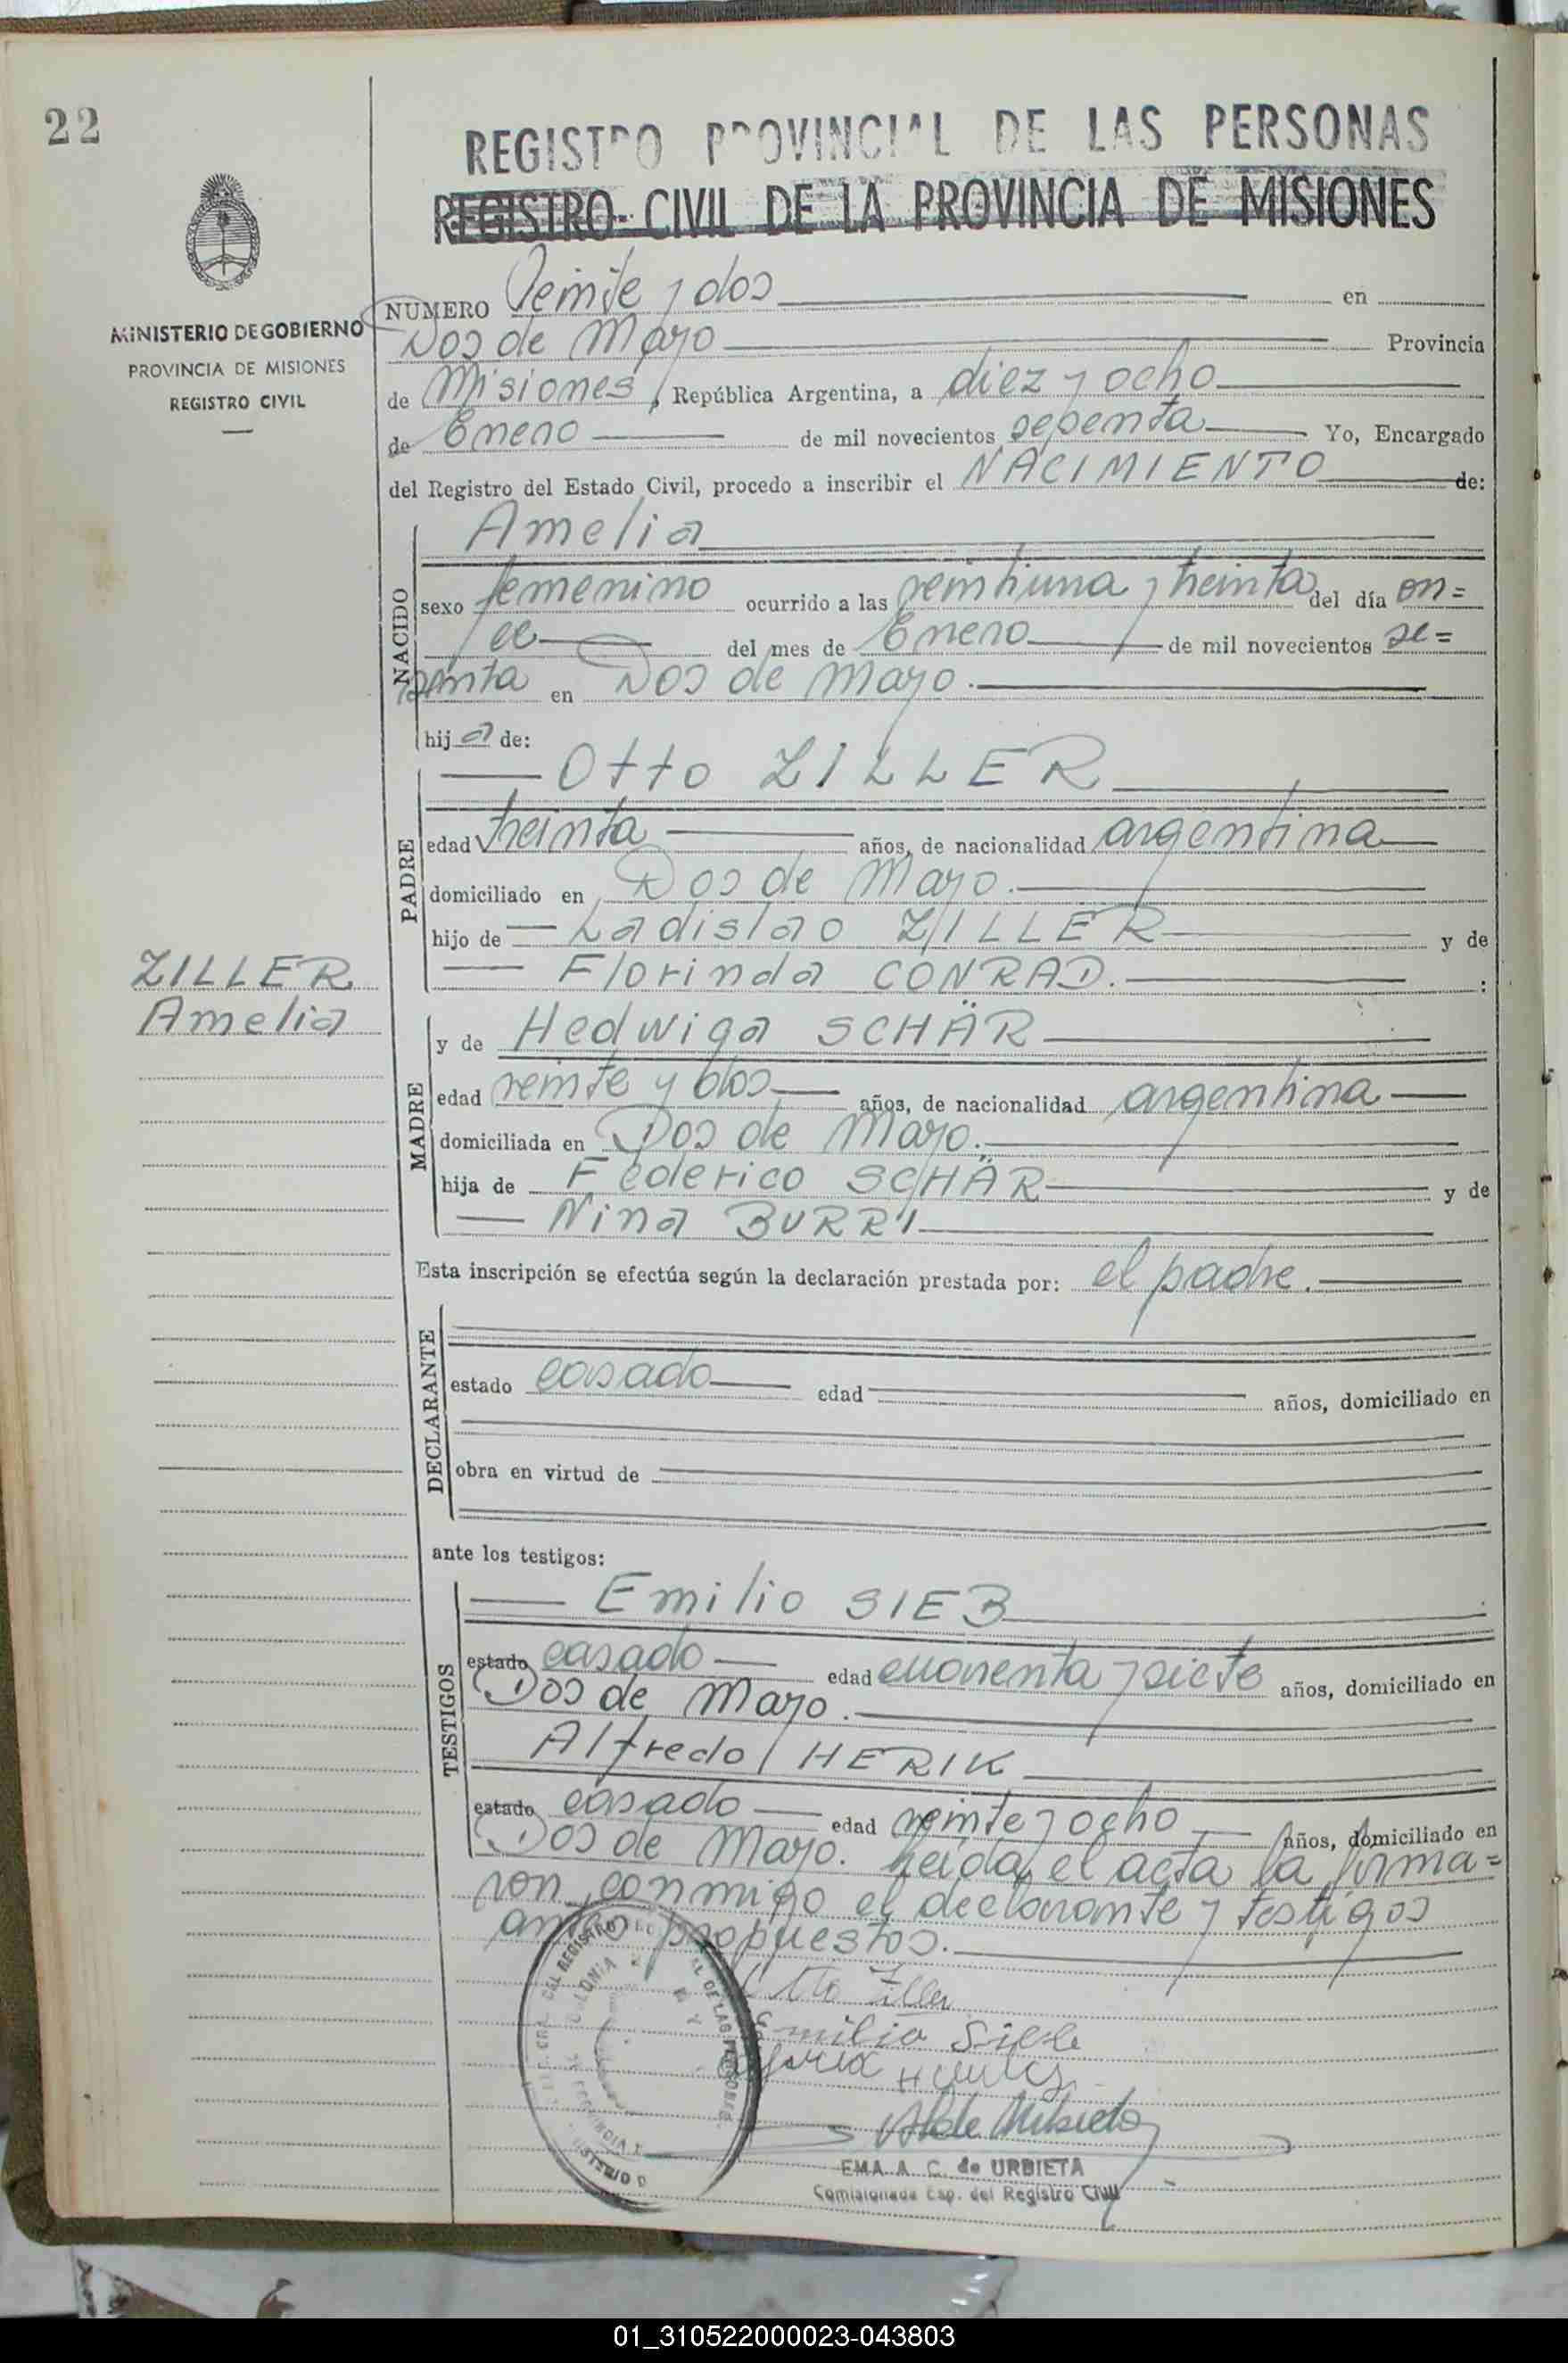 22
REGISTRO PROVINCIAL DE LAS PERSONAS
REGISTRO CIVIL DE LA PROVINCIA DE MISIONES
MINISTERIO DE GOBIERNO
PROVINCIA DE MISIONES
REGISTRO CIVIL
NUMERO Veinte y dos en
Dos de Mayo Provincia
de Misiones, República Argentina, a diez y ocho
de Enero de mil novecientos setenta Yo, Encargado
del Registro del Estado Civil, procedo a inscribir el NACIMIENTO de:
NACIDO
Amelia
sexo femenino ocurrido a las veintiuna y treinta del día on=
ce del mes de Enero de mil novecientos se=
tenta en Dos de Mayo.
hija de:
PADRE
Otto ZILLER
edad treinta años, de nacionalidad argentina
domiciliado en Dos de Mayo.
hijo de Ladislao ZILLER y de
Florinda CONRAD. :
ZILLER
Amelia
MADRE
y de Hedwiga SCHÄR
edad veinte y dos años, de nacionalidad argentina
domiciliada en Dos de Mayo.
hija de Federico SCHÄR y de
Nina BURRI
Esta inscripción se efectúa según la declaración prestada por: el padre.
DECLARANTE
estado casado edad años, domiciliado en
obra en virtud de
ante los testigos:
TESTIGOS
Emilio SIEB
estado casado edad cuarenta y siete años, domiciliado en
Dos de Mayo.
Alfredo HERIK
estado casado edad veinte y ocho años, domiciliado en
Dos de Mayo. Leída el acta la firma=
ron conmigo el declarante y testigos
antes propuestos.
Otto Ziller
Emilio Sieb
EMA A. C. de URBIETA
Comisionada Esp. del Registro Civil
01_310522000023-043803